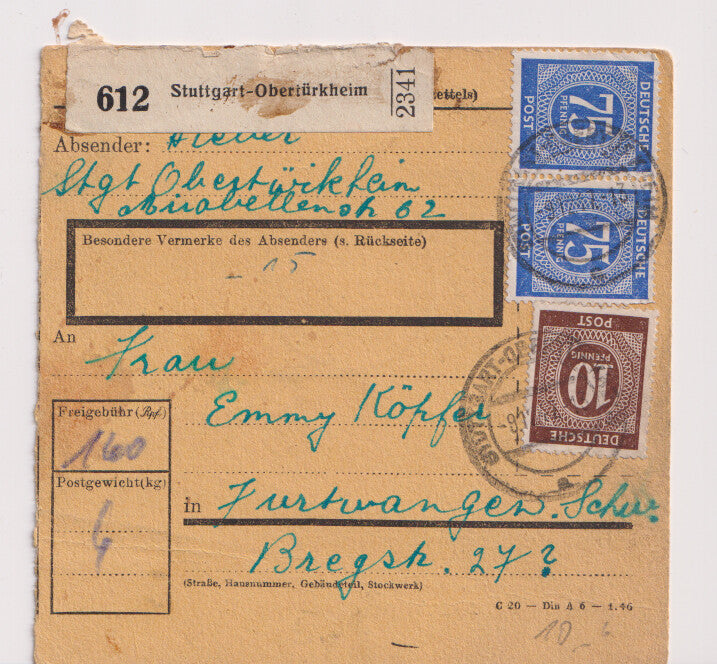 612 Stuttgart-Obertürkheim 2341
ettels)
Absender:
Stgt Obertürkheim
Mirabellenstr 62
Besondere Vermerke des Absenders (s. Rückseite)
- 15
An
Frau
Emmy Köpfer
Freigebühr (Rpf)
160
Postgewicht (kg)
in Furtwangen. Schw.
Bregstr. 27?
(Straße, Hausnummer, Gebäudeteil, Stockwerk)
C 20 — Din A 6 — 1.46
10 -
DEUTSCHE
75
PFENNIG
POST
DEUTSCHE
75
PFENNIG
POST
DEUTSCHE
10
PFENNIG
POST